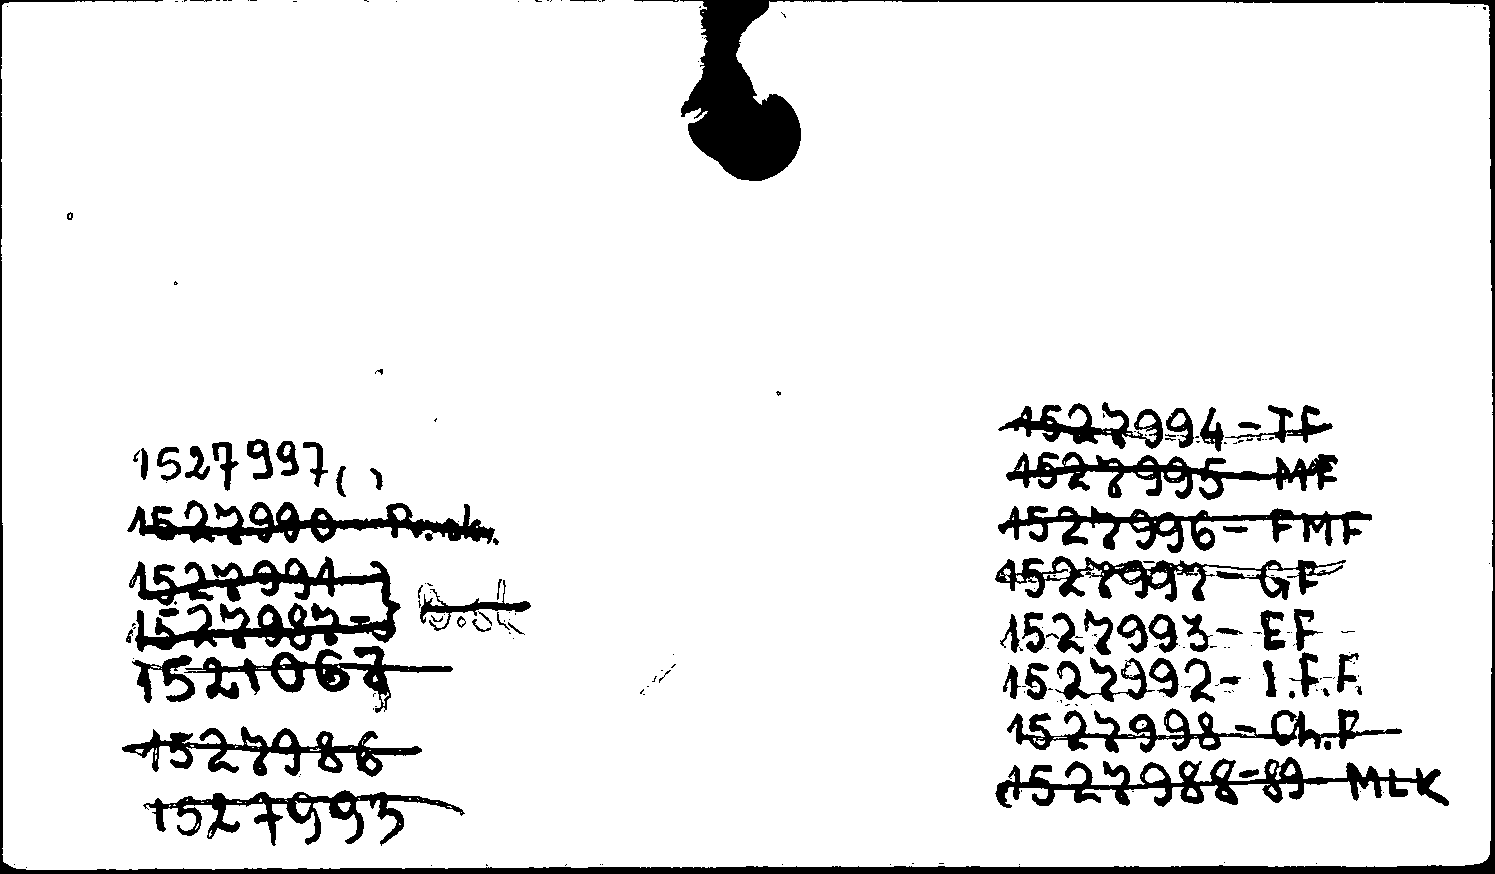 1527997
1527990 -
1527991 - }
1527987 - }
1521067
1527986
1527993
1527994 - TF
1527995 - MF
1527996 - FMF
1527997 - GF
1527993 - EF
1527992 - I.F.F.
1527998 - Ch.F
1527988-89 - MLK